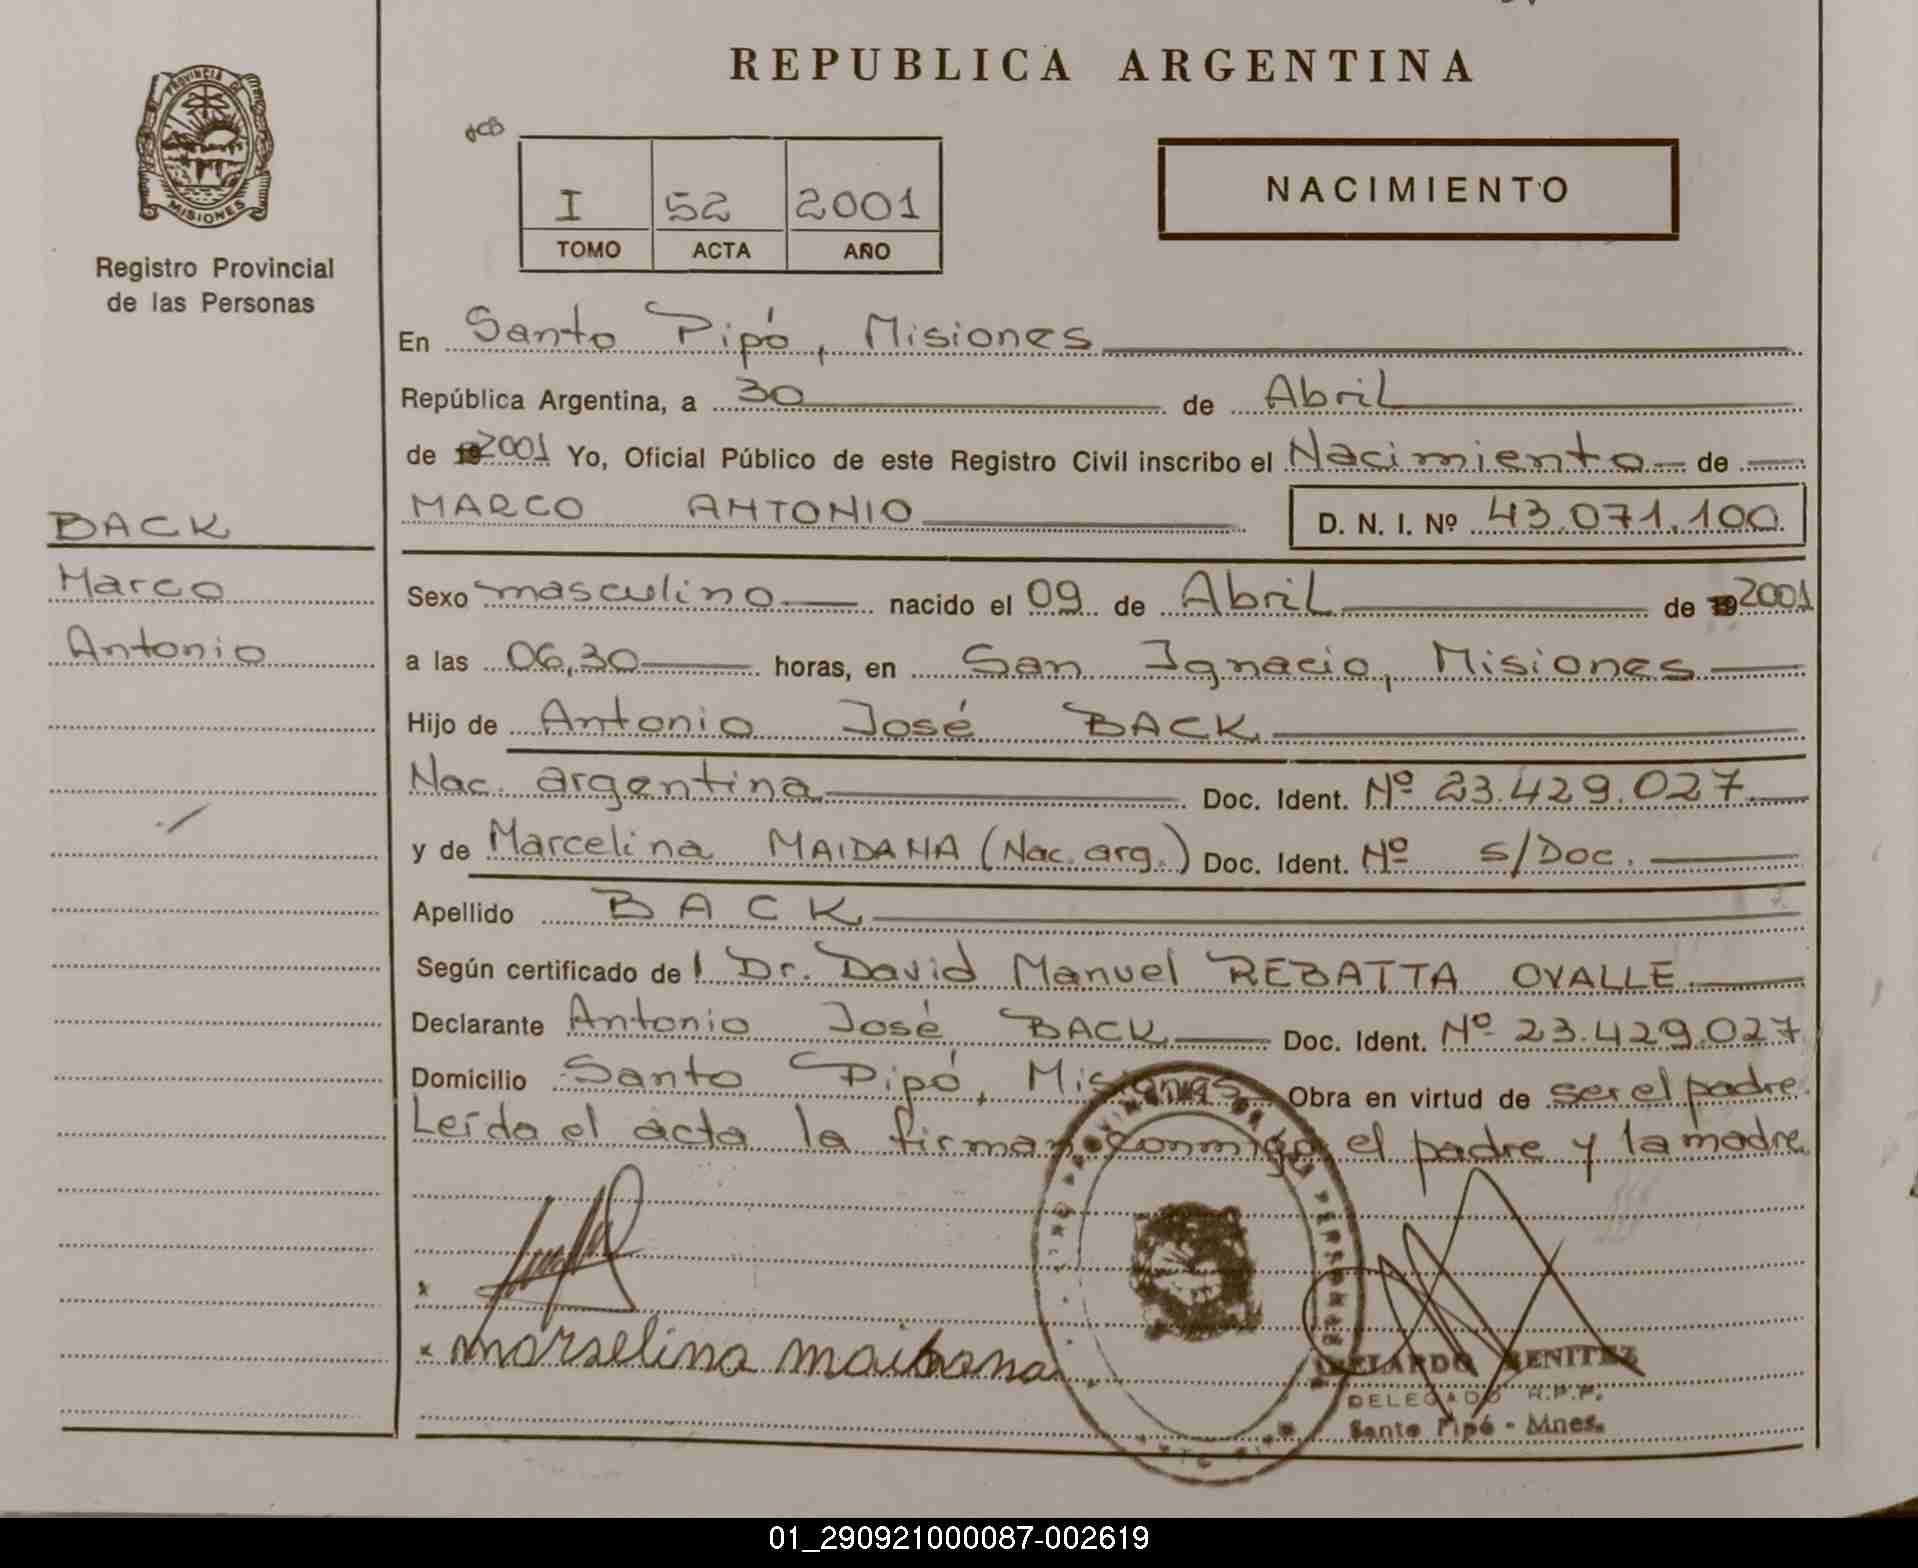 REPUBLICA ARGENTINA
PROVINCIA DE
MISIONES
Registro Provincial
de las Personas
I 52 2001
TOMO ACTA AÑO
NACIMIENTO
En Santo Pipó, Misiones
República Argentina, a 30 de Abril
de 2001 Yo, Oficial Público de este Registro Civil inscribo el Nacimiento de
MARCO ANTONIO D. N. I. Nº 43.071.100
BACK
Marco
Antonio
Sexo masculino nacido el 09 de Abril de 2001
a las 06,30 horas, en San Ignacio, Misiones
Hijo de Antonio José BACK
Nac. argentina Doc. Ident. Nº 23.429.027
y de Marcelina MAIDANA (Nac. arg.) Doc. Ident. Nº s/Doc.
Apellido BACK
Según certificado del Dr. David Manuel REBATTA OVALLE
Declarante Antonio José BACK Doc. Ident. Nº 23.429.027
Domicilio Santo Pipó, Misiones Obra en virtud de ser el padre.
Leída el acta la firman conmigo el padre y la madre
x
x marselina maidana
BENITEZ
DELEGADO R.P.P.
Santo Pipó - Mnes.
01_290921000087-002619